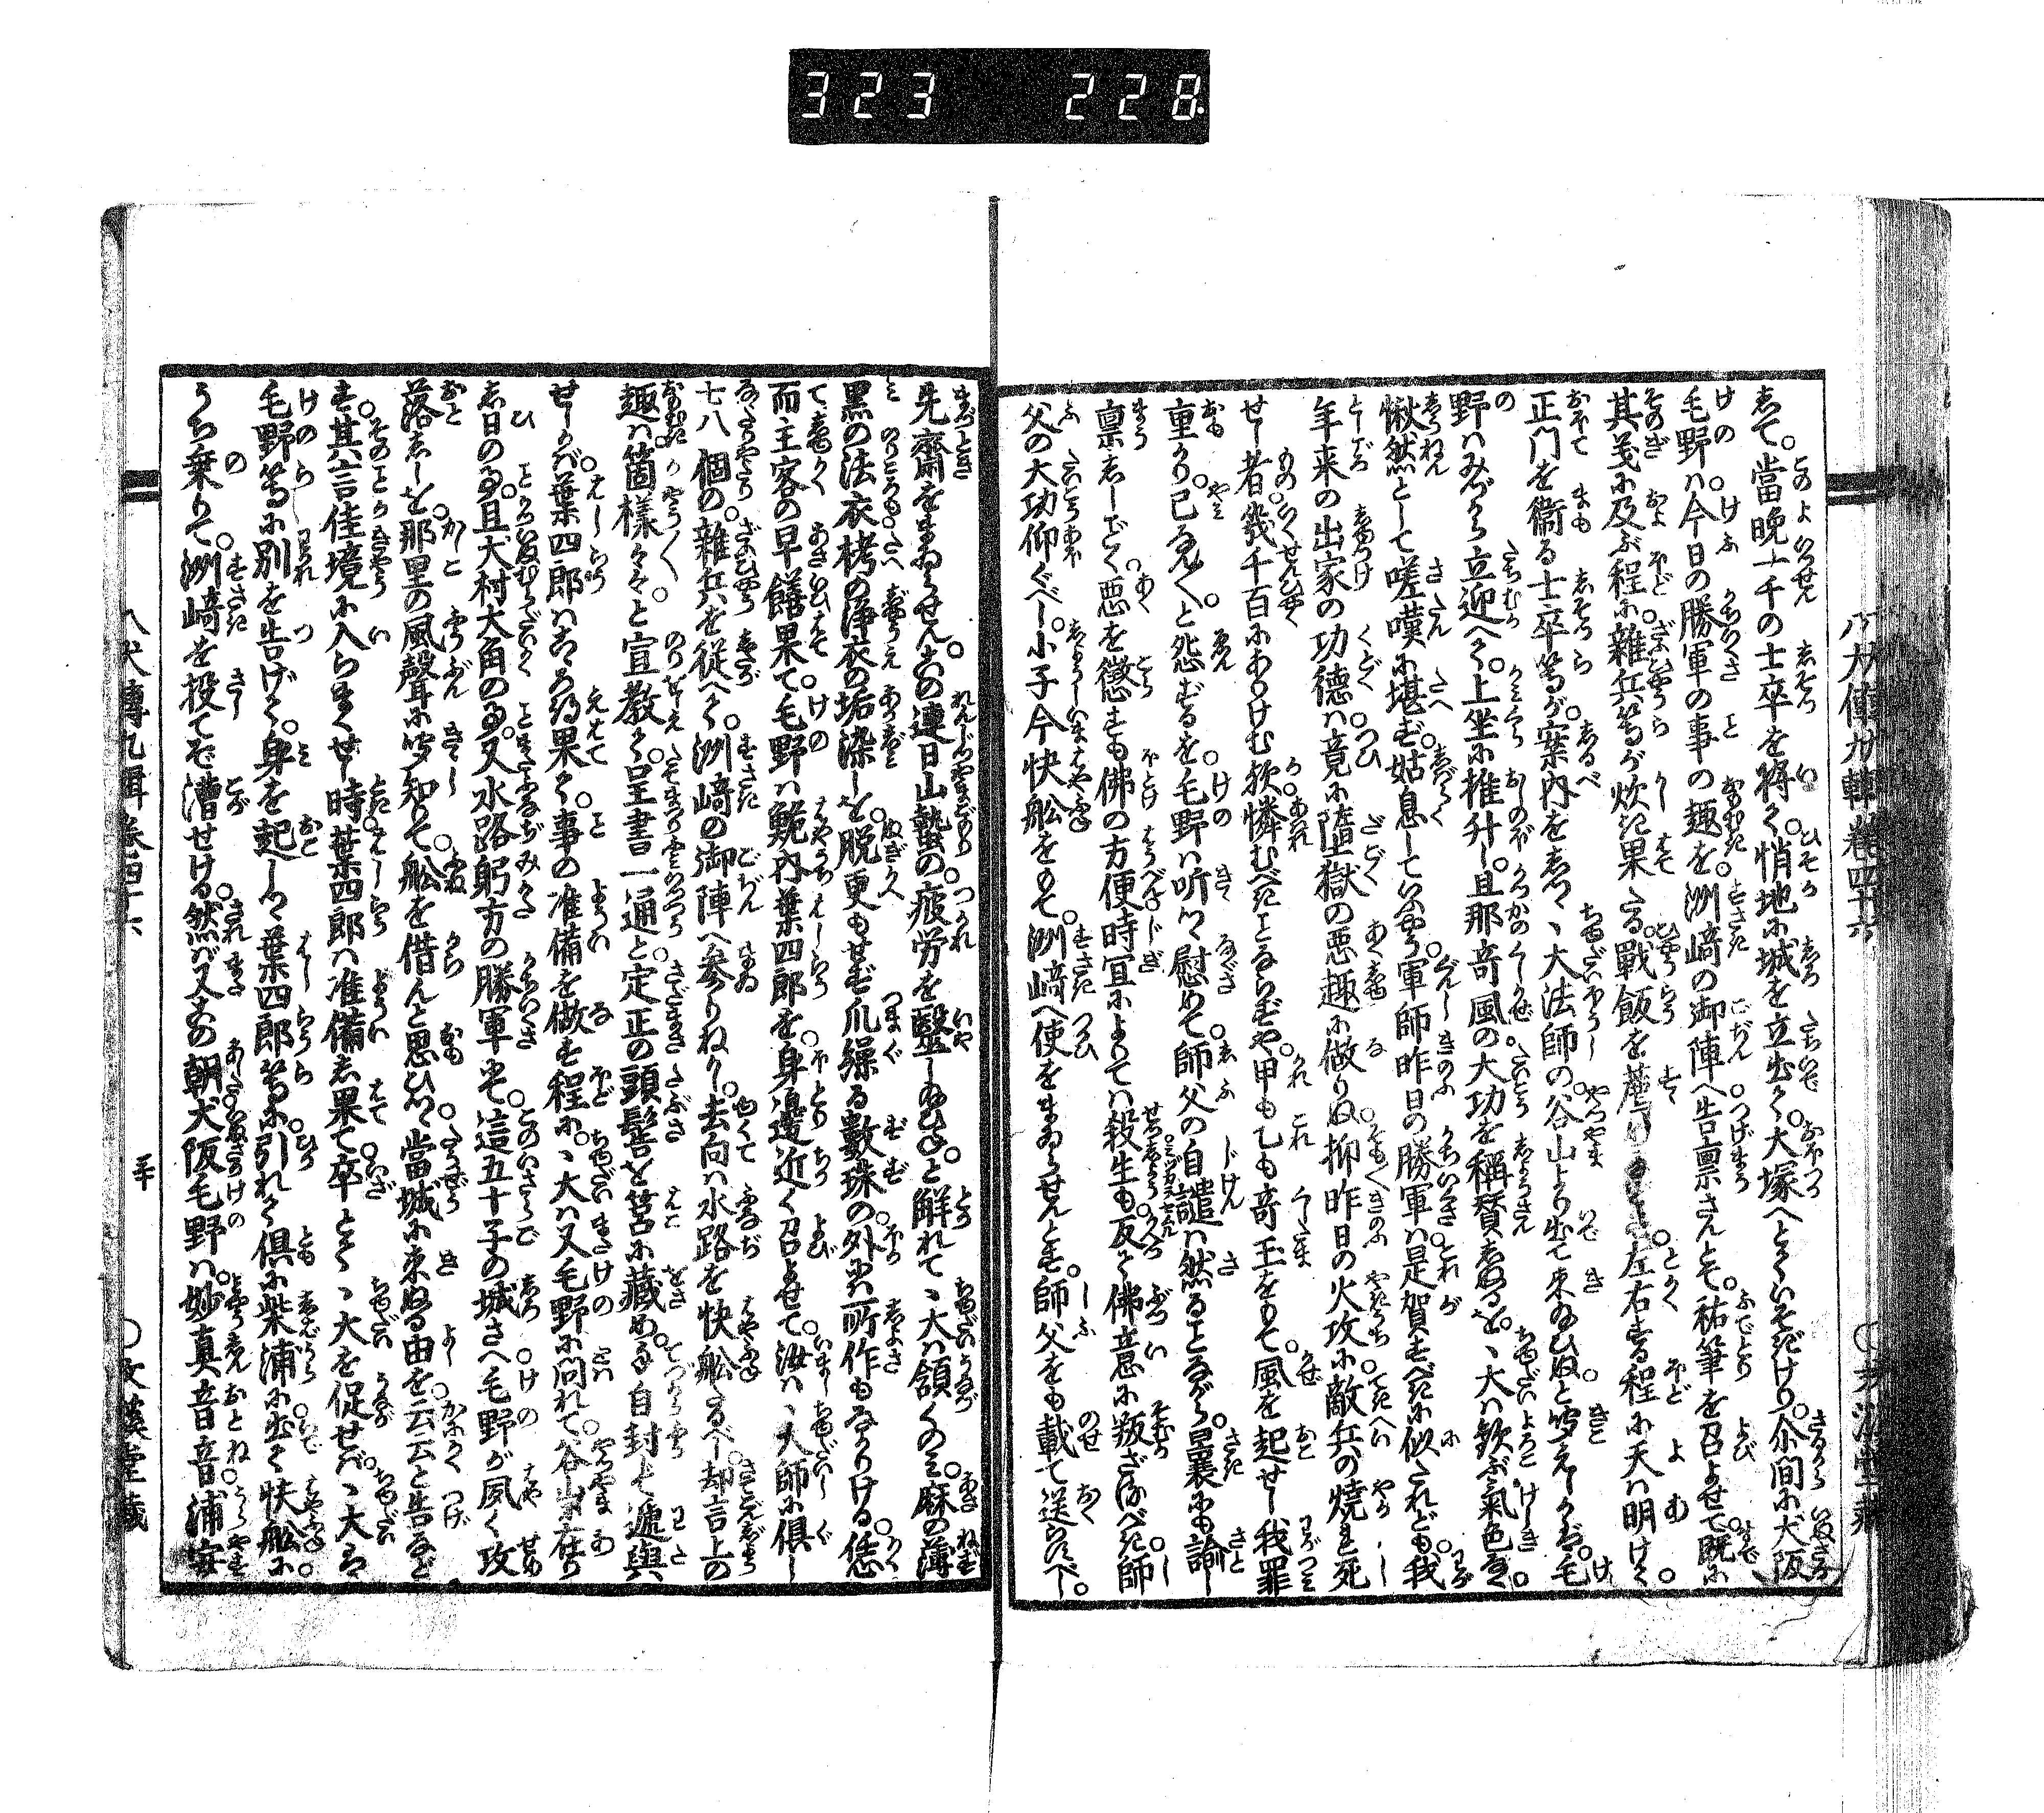 323 228
八犬傳九輯巻四十六
○文溪堂藏
あて。當晩一千の士卒を將て。悄地に城を立出て。大塚へとていそぎけり。尒間に犬阪
毛野ハ。今日の勝軍の事の趣を。洲﨑の御陣へ告稟さんとて。祐筆を召よせて。既に
其義に及ぶ程に。雜兵等が炊き果たる。戰飯を薦め
左右する程に天ハ明けて。
正門を衞る士卒等が。案内をしつゝ、大法師の。谷山より出て来ぬひぬと聞えしかバ。毛
野ハみづから立迎へて。上坐に推升し。且那竒風の大功を稱賛しぬるを。ゝ大ハ歓ぶ氣色なく。
愀然として嗟嘆に堪ず。姑息していふやう。軍師昨日の勝軍ハ。是賀すべきに似たれども。我
年来の出家の功德ハ。竟に墮獄の悪趣に做りぬ。抑昨日の火攻に。敵兵の燒れ死
せし者。幾千百にありけむ欤。憐むべきことならずや。甲も乙も竒玉をもて。風を起せし我罪
重かり。已なん〳〵と怨ずるを。毛野ハ听つゝ慰めて。師父の自譴ハ然ることながら。曩にも諭し
稟ししごとく。悪を懲すも佛の方便。時宜によりてハ殺生も。反て佛意に叛ざるべき。師
父の大功仰ぐべし。小子今快舩をもて。洲﨑へ使をまゐらせんとす。師父をも載て送らすべし。
先齋をまゐらせん。この連日山蟄の。疲労を醫しねひね。と觧れて、大ハ頷くのミ。麻の薄
黒の法衣栲の浄衣の垢染しを。脱更もせず爪繰る數珠の。外にハ所作もなかりける。恁
而主客の早饍果て。毛野ハ鮸内葉四郎を。身邊近く召よせて。汝ハ、大師に俱し
七八個の。雜兵を從へて。洲﨑の御陣へ參りねかし。去向ハ水路を快舩たるべし。却言上の
趣ハ。箇樣々々。と宣教て。呈書一通と。定正の頭髻を筥に藏めたる。自封して遞與
せしかバ。葉四郎ハこゝろ得果て。事の准備を做す程に。ゝ大ハ又毛野に問れて。谷山に在り
し日の事。且犬村大角の事。又水路躬方の勝軍も。這五十子の城さへ毛野が夙く攻
落ししを。那里の風聲に聞知りて。舩を借んと思ひつゝ。當城に來ぬる由を。云云と告るなど
す。其言佳境に入らまくせし時。葉四郎ハ准備し果て。卒とて、大を促せバ。ゝ大ハ
毛野等に別を告げて。身を起しつゝ葉四郎等に。引れて俱に柴浦に出て。快舩に
うち乗りて。洲﨑を投てぞ漕せける。然バ又この朝。犬阪毛野ハ。妙真音音。浦安
八犬傳九輯巻四十六
○文溪堂藏